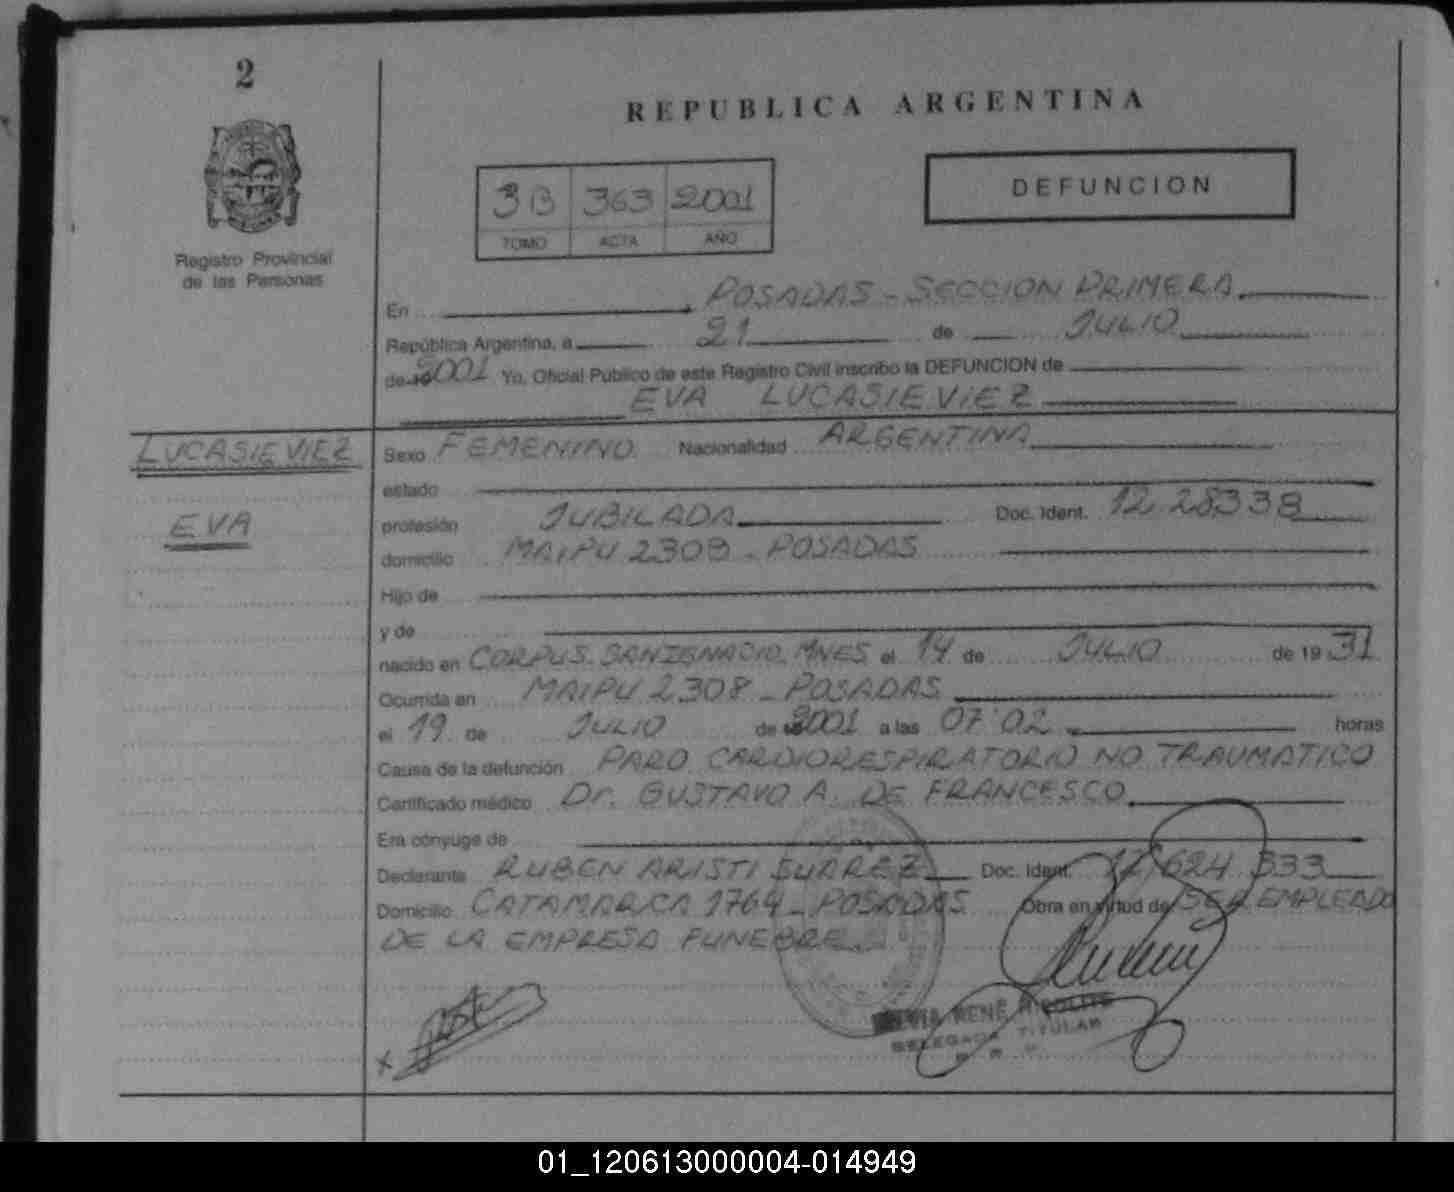 2
REPUBLICA ARGENTINA
DEFUNCION
3B 363 2001
TOMO ACTA AÑO
Registro Provincial
de las Personas
En POSADAS - SECCION PRIMERA
República Argentina, a 21 de JULIO
de 19 2001 Yo, Oficial Público de este Registro Civil inscribo la DEFUNCION de
EVA LUCASIEVIEZ
LUCASIEVIEZ
EVA
Sexo FEMENINO Nacionalidad ARGENTINA
estado
profesión JUBILADA Doc. Ident.
domicilio MAIPU 2308 - POSADAS
Hijo de
y de
nacido en CORPUS. SAN IGNACIO. MNES el 14 de JULIO de 19 31
Ocurrida en MAIPU 2308 - POSADAS
el 19 de JULIO de 19 2001 a las 07:02 horas
Causa de la defunción PARO CARDIORESPIRATORIO NO TRAUMATICO
Certificado médico Dr. GUSTAVO A. DE FRANCESCO
Era cónyuge de
Declarante RUBEN ARISTI SUAREZ Doc. Ident. 12.624.333
Domicilio CATAMARCA 1764 - POSADAS Obra en virtud de SER EMPLEADO
DE LA EMPRESA FUNEBRE.
RENE HIPOLITO
DELEGADA TITULAR
01_120613000004-014949